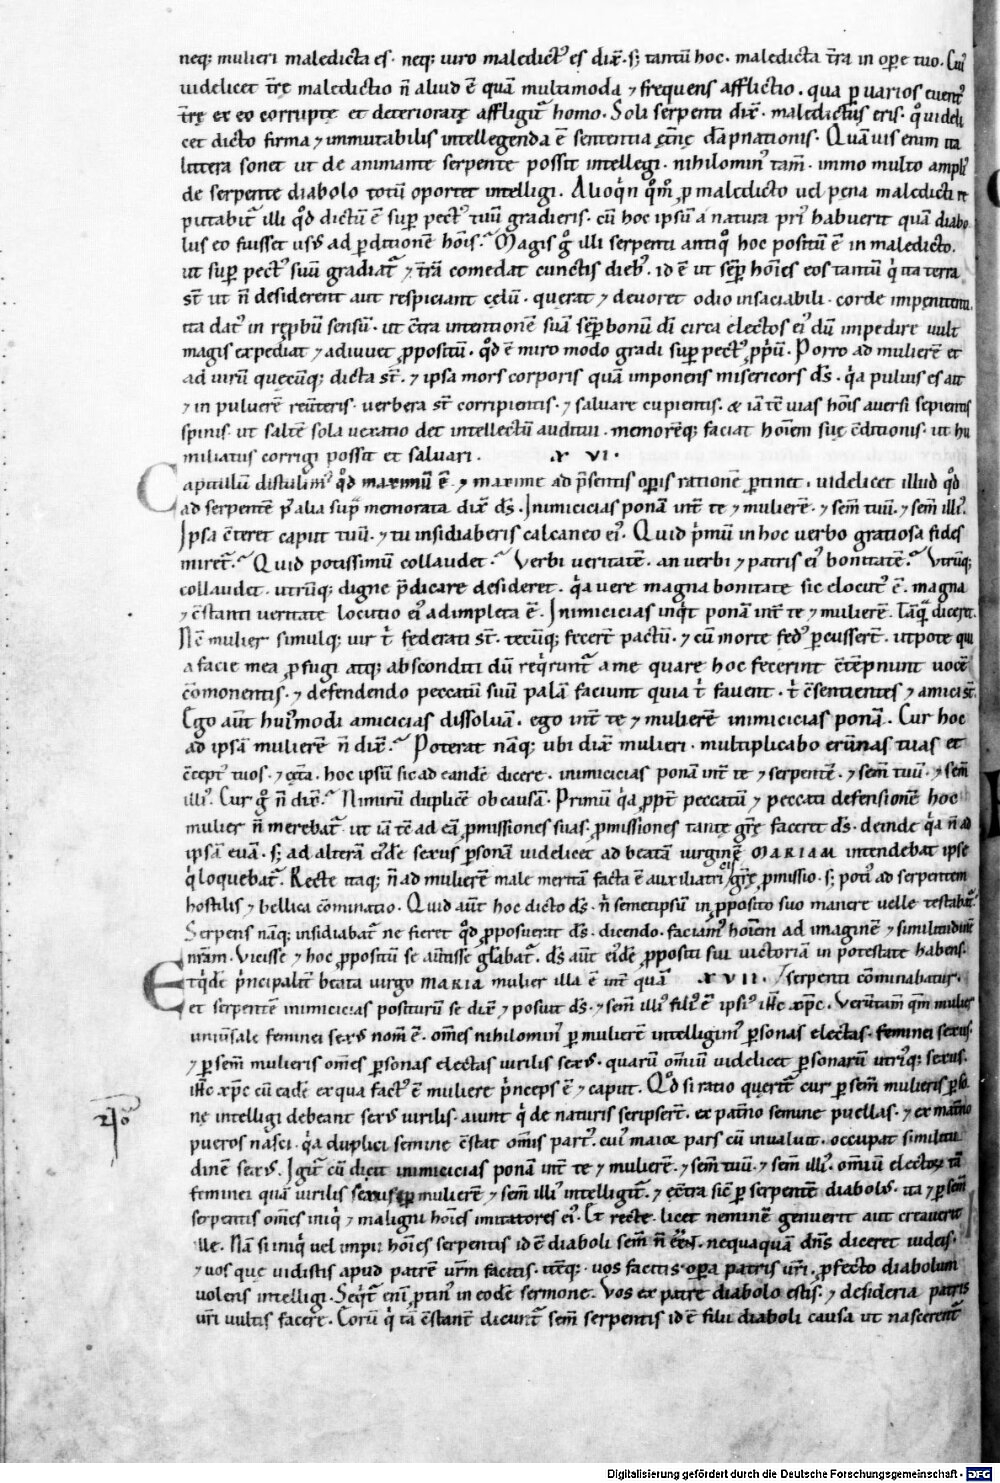 neq; mulieri maledicta es. neq; uiro maledict᷒ es dix̄. s; tantū hoc. maledicta t̄ra in oꝑe tuo. Cui᷒
uidelicet t̄rę maledictio n̄ aliud ē quā multimoda ⁊ frequens afflictio. qua ꝑ uarios euent᷒
t̄rę ex eo corruptę et deterioratę affligit᷑ homo. Soli serpenti dix̄. maledictus eris. qͦ uideli
cet dicto firma ⁊ immutabilis intellegenda ē sententia ęt̄nę dāpnationis. Quāuis enim ita
littera sonet ut de animante serpente possit intellegi. nihilomin᷒ tam̄. immo multo ampli᷒
de serpente diabolo totū oportet intelligi. Alioqͥn qͦm̄ ꝓ maledicto uel pena maledicti re
putabit᷑ illi qͦd dictū ē suꝑ pect᷒ tuū gradieris. cū hoc ipsū a natura pri᷒ habuerit quā diabo
lus eo fuisset us᷒ ad ꝑditionē hōis. Magis gͦ illi serpenti antiqͦ hoc positū ē in maledicto.
ut suꝑ pect᷒ suū gradiat᷑ ⁊ t̄rā comedat cunctis dieb᷒. id ē ut sēꝑ hōies eos tantū qͥ ita terra
st̄ ut n̄ desiderent aut respiciant cęlū. querat ⁊ deuoret odio insaciabili. corde impenitenti.
ita dat᷒ in rępbū sensū. ut c̄tra intentionē suā sēꝑ bonū dī circa electos ei᷒ dū impedire uult
magis expediat ⁊ adiuuet ꝓpositū. qͦd ē miro modo gradi suꝑ pect᷒ ꝓpriū. Porro ad mulierē et
ad uirū quęcūq; dicta st̄. ⁊ ipsa mors corporis quā imponens misericors d̄s. qͥa puluis es ait
⁊ in puluerē reu̅teris. uerbera st̄ corripientis. ⁊ saluare cupientis. & iā tē uias hōis auersi sepientis
spinis. ut saltē sola uexatio det intellectū auditui. memorēq; faciat hoīem suę c̄ditionis. ut hu
miliatus corrigi possit et saluari. XVI.
Capitulū distulim᷒ qͦd maximū ē. ⁊ maxime ad p̄sentis oꝑis rationē ꝑtinet. uidelicet illud qͦd
ad serpentē p᷒ alia supͣ memorata dix̄ d̄s. Inimicicias ponā int̄ te ⁊ mulierē. ⁊ sem̄ tuū. ⁊ sem̄ illi᷒.
Ipsa c̄teret caput tuū. ⁊ tu insidiaberis calcaneo ei᷒. Quid p̄mū in hoc uerbo gratiosa fides
miret᷑. Quid potissimū collaudet. Verbi ueritatē. an uerbi ⁊ patris ei᷒ bonitatē. Vtrūq;
collaudet. utrūq; digne p̄dicare desideret. qͥa uere magna bonitate sic elocut᷒ ē. magna
⁊ c̄stanti ueritate locutio ei᷒ adimpleta ē. Inimicicias inqͥt ponā int̄ te ⁊ mulierē. Tāqͣ diceret.
Nē mulier simulq; uir tͥ fęderati st̄. tecūq; fecer̄t pactū. ⁊ cū morte fed᷒ ꝑcusser̄t. utpote qui
a facie mea ꝓfugi atq; absconditi dū reqͥrunt᷑ a me quare hoc fecerint c̄tēpnunt uocē
c̄monentis. ⁊ defendendo peccatū suū palā faciunt quia tͥ fauent. tͥ c̄sentientes ⁊ amici st̄.
Ego aut̄ hui᷒modi amicicias dissoluā. ego int̄ te ⁊ mulierē inimicicias ponā. Cur hoc
ad ipsā mulierē n̄ dix̄. Poterat nāq; ubi dix̄ mulieri. multiplicabo erūnas tuas et
c̄cept᷒ tuos. ⁊ cęt̄a. hoc ipsū sic ad eandē dicere. inimicicias ponā int̄ te ⁊ serpentē. ⁊ sem̄ tuū. ⁊ sem̄
illi᷒. Cur gͦ n̄ dix̄. Nimirū duplicē ob causā. Primū qͥa ꝓpt̄ peccatū ⁊ peccati defensionē hoc
mulier n̄ merebat᷑. ut iā tē ad eā ꝓmissiones suas. ꝓmissiones tantę gr̄ę faceret d̄s. deinde qͥa n̄ ad
ipsā euā. s; ad alterā ei᷒dē sexus ꝑsonā uidelicet ad beatā uirginē MARIAM intendebat ipse
qͥ loquebat᷑. Recte itaq; n̄ ad mulierē male meritā facta ē auxiliatricis gr̄ę ꝓmissio. s; poti᷒ ad serpentem
hostilis ⁊ bellica c̄minatio. Quid aut̄ hoc dicto d̄s. n̄ semetipsū in ꝓposito suo manere uelle testabat᷑.
Serpens nāq; insidiabat᷑ ne fieret qͦd ꝓposuerat d̄s. dicendo. faciam᷒ hoīem ad imaginē ⁊ similitudinē
nr̄am. Vicisse ⁊ hoc ꝓpositū se au̅tisse gl̄abat᷑. d̄s aut̄ ei᷒dē ꝓpositi sui uictoriā in potestate habens.
Etqͥdē p̄ncipalit̄ beata uirgo MARIA mulier illa ē int̄ quā XVII. serpenti c̄minabatur.
et serpentē inimicias positurū se dix̄ ⁊ posuit d̄s. ⁊ sem̄ illi᷒ fili᷒ ē ipsi᷒ ih̄c xp̄c. Veru̅tam̄ qm̄ mulier
uniu̅sale feminei sex᷒ nom̄ ē. om̄es nihilomin᷒ ꝑ mulierē intelligim᷒ ꝑsonas electas. feminei sexus.
⁊ ꝑ sem̄ mulieris om̄es ꝑsonas electas uirilis sex᷒. quarū om̄iū uidelicet ꝑsonarū utri᷒q; sexus.
ih̄c xp̄c cū eadē ex qua fact᷒ ē muliere p̄nceps ē ⁊ caput. Qͦd si ratio querit᷑ cur ꝑ sem̄ mulieris ꝑso
nę intelligi debeant sex᷒ uirilis. aiunt qͥ de naturis scripser̄t. ex pat̄no semine puellas. ⁊ ex mat̄no
pueros nasci. qͥa duplici semine c̄stat om̄is part᷒. cui᷒ maior pars cū inualuit. occupat similitu
dinē sex᷒. Igit᷑ cū dicit inimicicias ponā int̄ te ⁊ mulierē. ⁊ sem̄ tuū. ⁊ sem̄ illi᷒. om̄iū electoꝝ tā
feminei quā uirilis sexus ꝑ mulierē ⁊ sem̄ illi᷒ intelligit᷑. ⁊ ec̄tra sic̄ ꝑ serpentē diabol᷒. ita ⁊ ꝑ sem̄
serpentis om̄es iniqͥ ⁊ maligni hoīes imitatores ei᷒. Et recte. licet neminē genuerit aut creauerit
ille. Nā si iniqͥ uel impii hoīes serpentis id ē diaboli sem̄ n̄ eēnt. nequaquā dn̄s diceret iudeis.
⁊ uos que uidistis apud patrē ur̄m facitis. itēq; uos facitis oꝑa patris ur̄i. ꝓfecto diabolum
uolens intelligi. Seqͥt᷑ enī ꝓtin᷒ in eodē sermone. Vos ex patre diabolo estis. ⁊ desideria patris
ur̄i uultis facere. Corū qͥ tā c̄stant̄ dicunt᷑ sem̄ serpentis id ē filii diaboli causa ut nascerent᷑